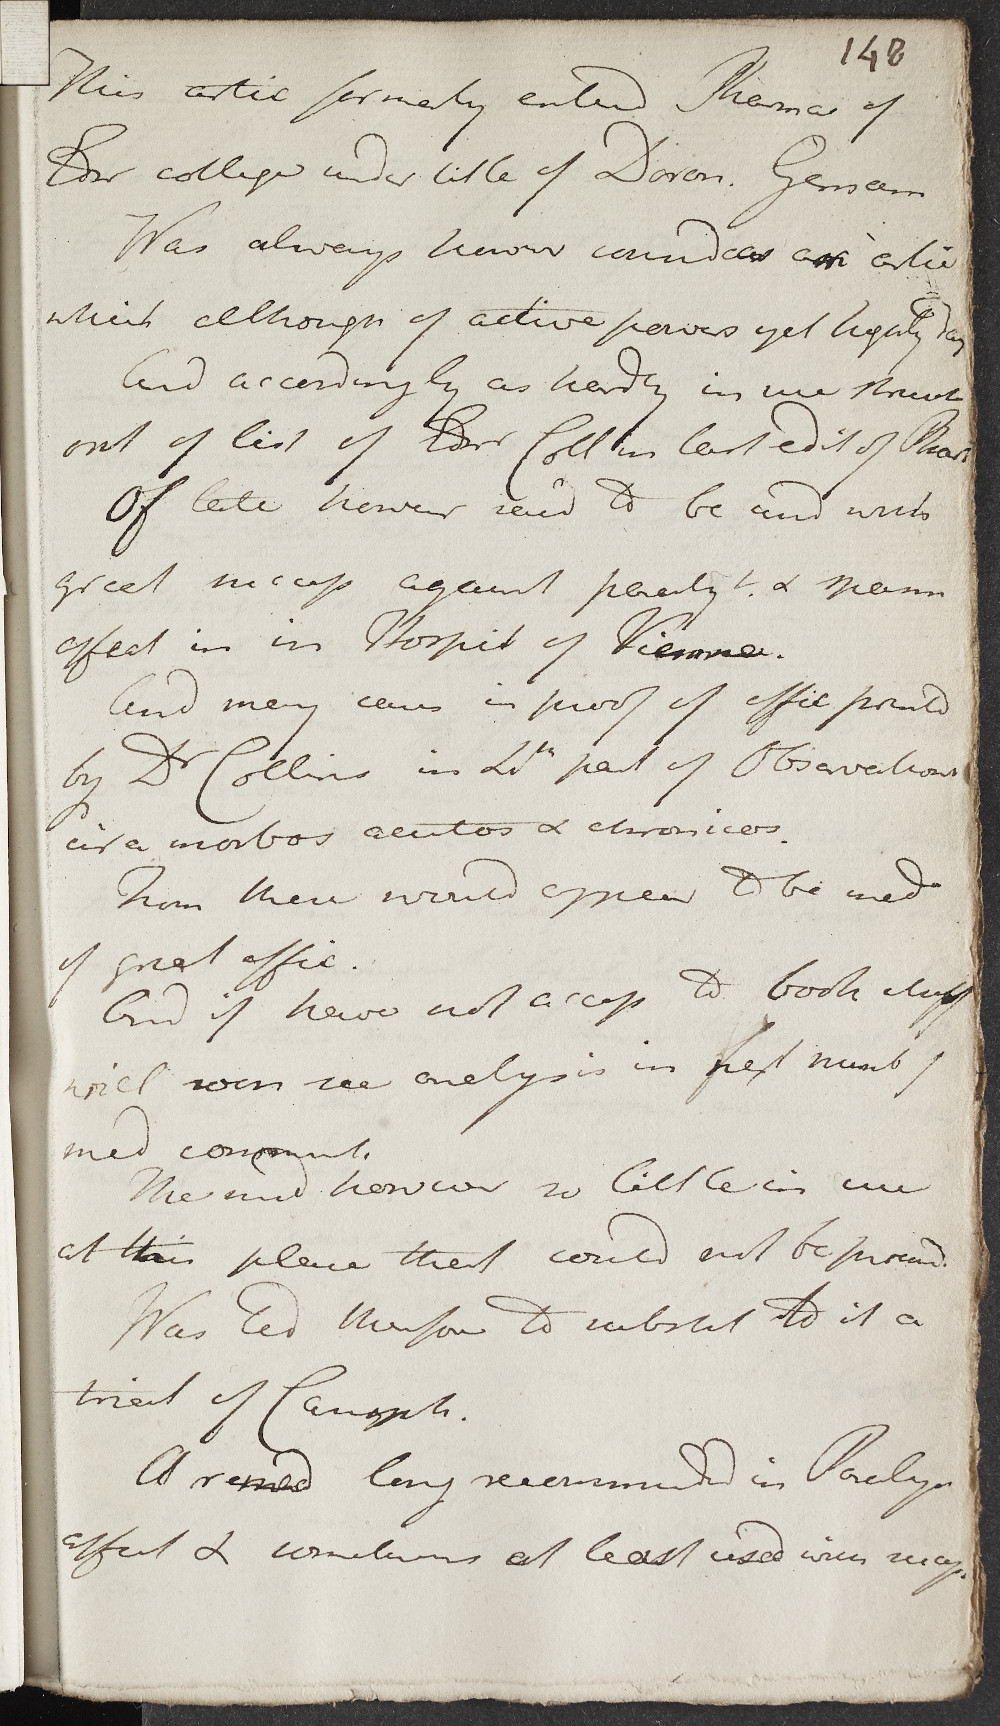 148
This artic formerly enterd Pharmac of
Edinr college under title of Doron. German
Was always howevr considd as an artic
which although of active powers yet highly dang
And accordingly as hardly in use struck
out of list of Edinr Coll in last edit of Phar
Of late howevr said to be usd with
great success against paralyt. & spasm
affect in in Hospit of Vienna.
And many cases in proof of effic printd
by Dr Collins in 4th part of Observations
circa morbos acutos & chronicos.
From these would appear to be med
of great effic.
And if have not access to book itself
will soon see analysis in next numb of
med comment.
The med however so little in use
at this place that could not be procurd.
Was led therefore to substit to it a
trial of Camph.
A remed long recommended in Paralyt
affect & sometimes at least used with success.